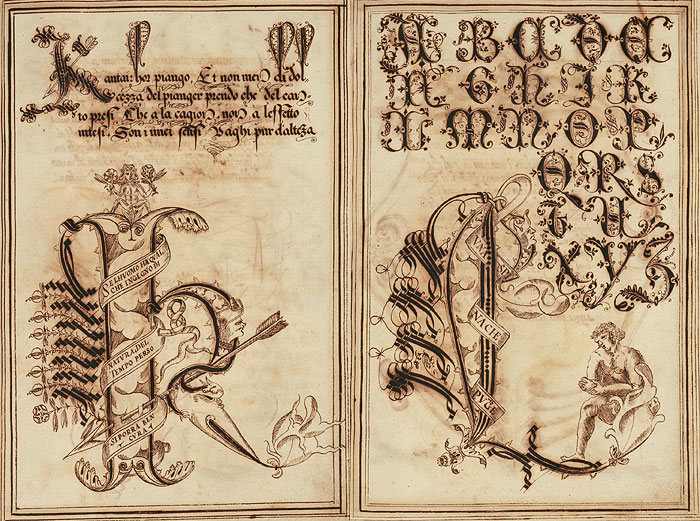 Kantai: hor piango, Et non men di dol
cezza del pianger prendo che del can
to presi. Che a la cagion, non a leffetto
intesi. Son i miei sensi Vaghi pur dalteza
HVOMO HA QVAL
CHE INGEGNO DI
NATVRA, DEL
TEMPO PERSO
SI PORRE
CVRA
A B C D E
F G H I K
L M N O P
Q R S
T U
X Y Z
NACIE
PVRE